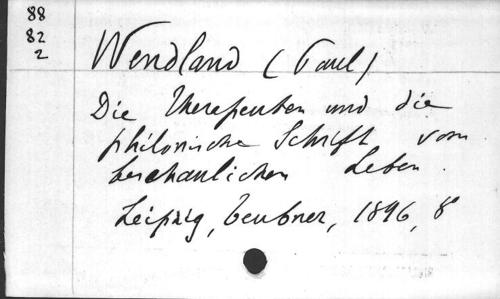 88
82
2
Wendland (Paul)
Die Therapeuten und die
philonische Schrift vom
beschaulichen Leben.
Leipzig, Teubner, 1896, 8°